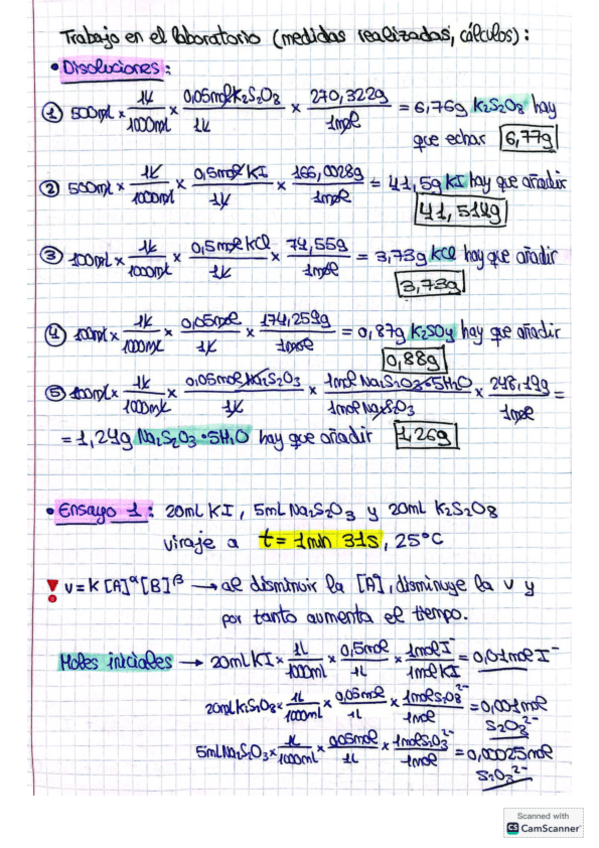 Trabajo en el laboratorio (medidas realizadas, cálculos):
• Disoluciones:
① 500ml × 1L/1000ml × 0,05mol K2S2O8/1L × 270,322g/1mol = 6,76g K2S2O8 hay
que echar 6,77g
② 500ml × 1L/1000ml × 0,5mol KI/1L × 166,0028g/1mol = 41,5g KI hay que añadir
41,514g
③ 100ml × 1L/1000ml × 0,5mol KCl/1L × 74,55g/1mol = 3,73g KCl hay que añadir
3,73g
④ 100ml × 1L/1000ml × 0,05mol/1L × 174,259g/1mol = 0,87g K2SO4 hay que añadir
0,88g
⑤ 100ml × 1L/1000ml × 0,05mol Na2S2O3/1L × 1mol Na2S2O3•5H2O/1mol Na2S2O3 × 248,19g/1mol =
= 1,24g Na2S2O3•5H2O hay que añadir 1,26g
• Ensayo 1: 20mL KI, 5mL Na2S2O3 y 20mL K2S2O8
viraje a t= 1min 31s, 25°C
! v=K [A]^α [B]^β → al disminuir la [A], disminuye la v y
por tanto aumenta el tiempo.
Moles iniciales → 20mL KI × 1L/1000ml × 0,5mol/1L × 1mol I⁻/1mol KI = 0,01mol I⁻
20ml K2S2O8 × 1L/1000ml × 0,05mol/1L × 1mol S2O8²⁻/1mol = 0,001mol
S2O8²⁻
5ml Na2S2O3 × 1L/1000ml × 0,05mol/1L × 1mol S2O3²⁻/1mol = 0,00025mol
S2O3²⁻
Scanned with
CS CamScanner